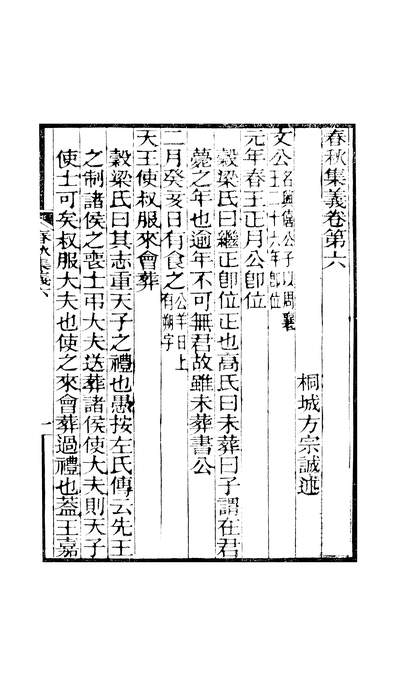 春秋集義卷第六
桐城方宗誠述
文公名興僖公子以周襄王二十六年卽位
元年春王正月公卽位
穀梁氏曰繼正卽位正也高氏曰未葬曰子謂在君
薨之年也逾年不可無君故雖未葬書公
二月癸亥日有食之公羊日上有朔字
天王使叔服來會葬
穀梁氏曰其志重天子之禮也愚按左氏傳云先王
之制諸侯之喪士弔大夫送葬諸侯使大夫則天子
使士可矣叔服大夫也使之來會葬過禮也葢王嘉
春秋集義六
一